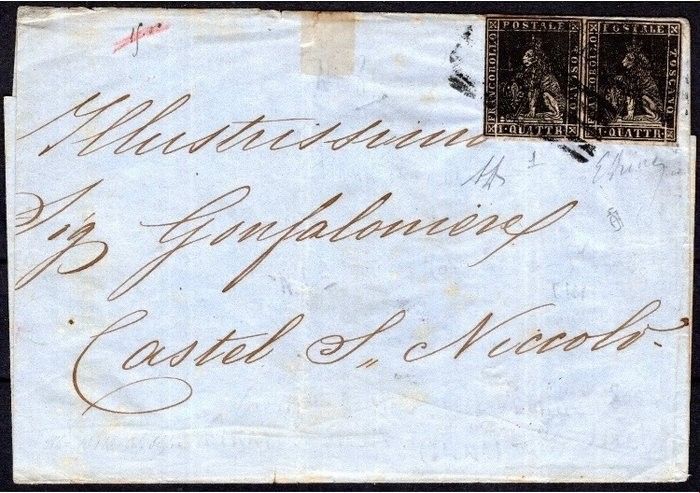 FRANCOBOLLO POSTALE TOSCANO
1 QUATTR
FRANCOBOLLO POSTALE TOSCANO
1 QUATTR
Illustrissimo
Sig Gonfaloniere
Castel S,, Niccolò